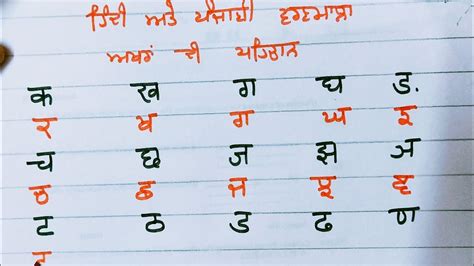 ਹਿੰਦੀ ਅਤੇ ਪੰਜਾਬੀ ਵਰਣਮਾਲਾ
ਅਖਰਾਂ ਦੀ ਪਹਿਚਾਨ
क ख ग घ ड.
ਕ ਖ ਗ ਘ ਙ
च छ ज झ ञ
ਚ ਛ ਜ ਝ ਞ
ट ठ ड ढ ण